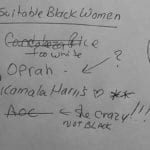 Suitable Black Women
Condoleeza Rice
too white
Oprah ?
Kamala Harris ♡ **
AOC ← she crazy!!!
NOT BLACK